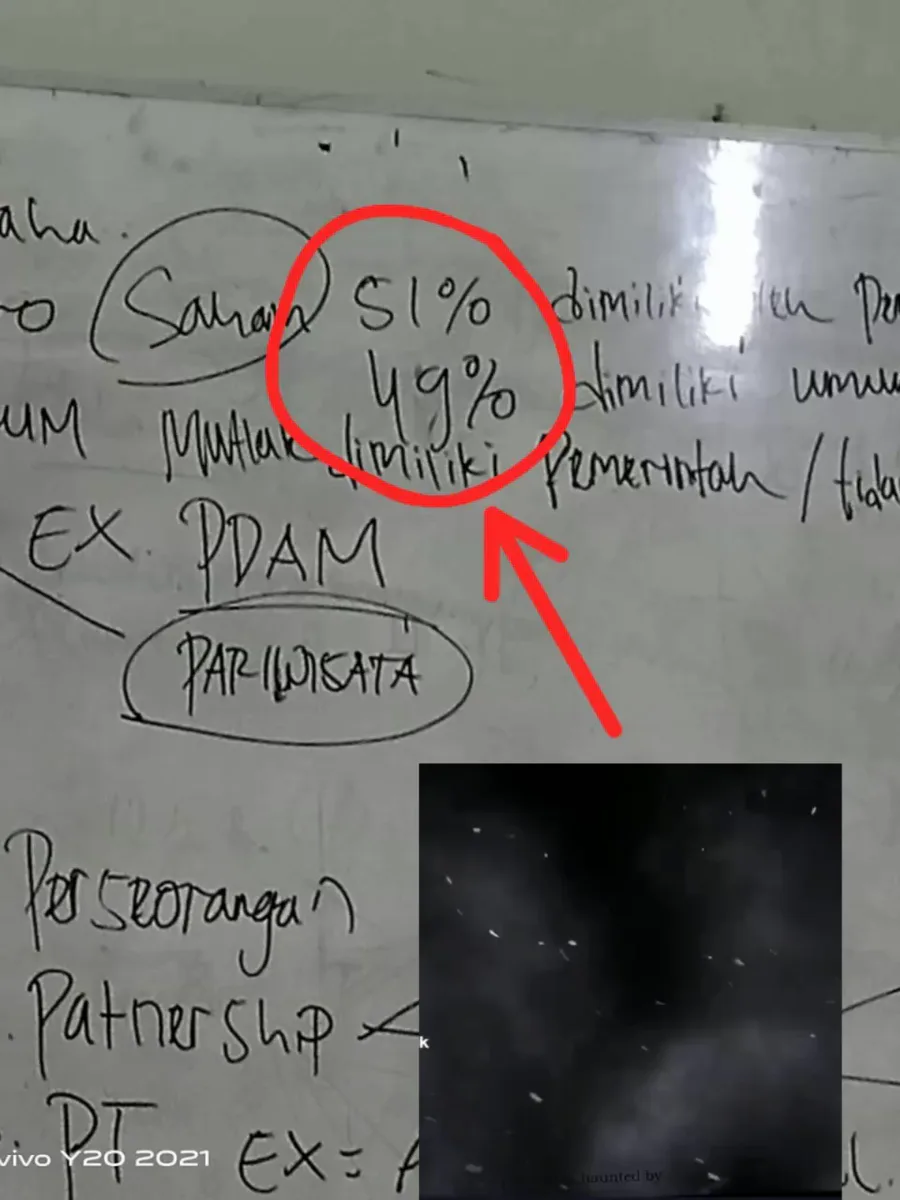 aha.
o Saham 51% dimiliki oleh Pe
49% dimiliki umu
UM Mutlak dimiliki Pemerintah / tida
EX. PDAM
PARIWISATA
Perseorangan
Patnership
k
PT EX =
vivo Y20 2021
haunted by